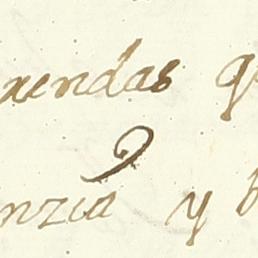 rendas q
nzia y b